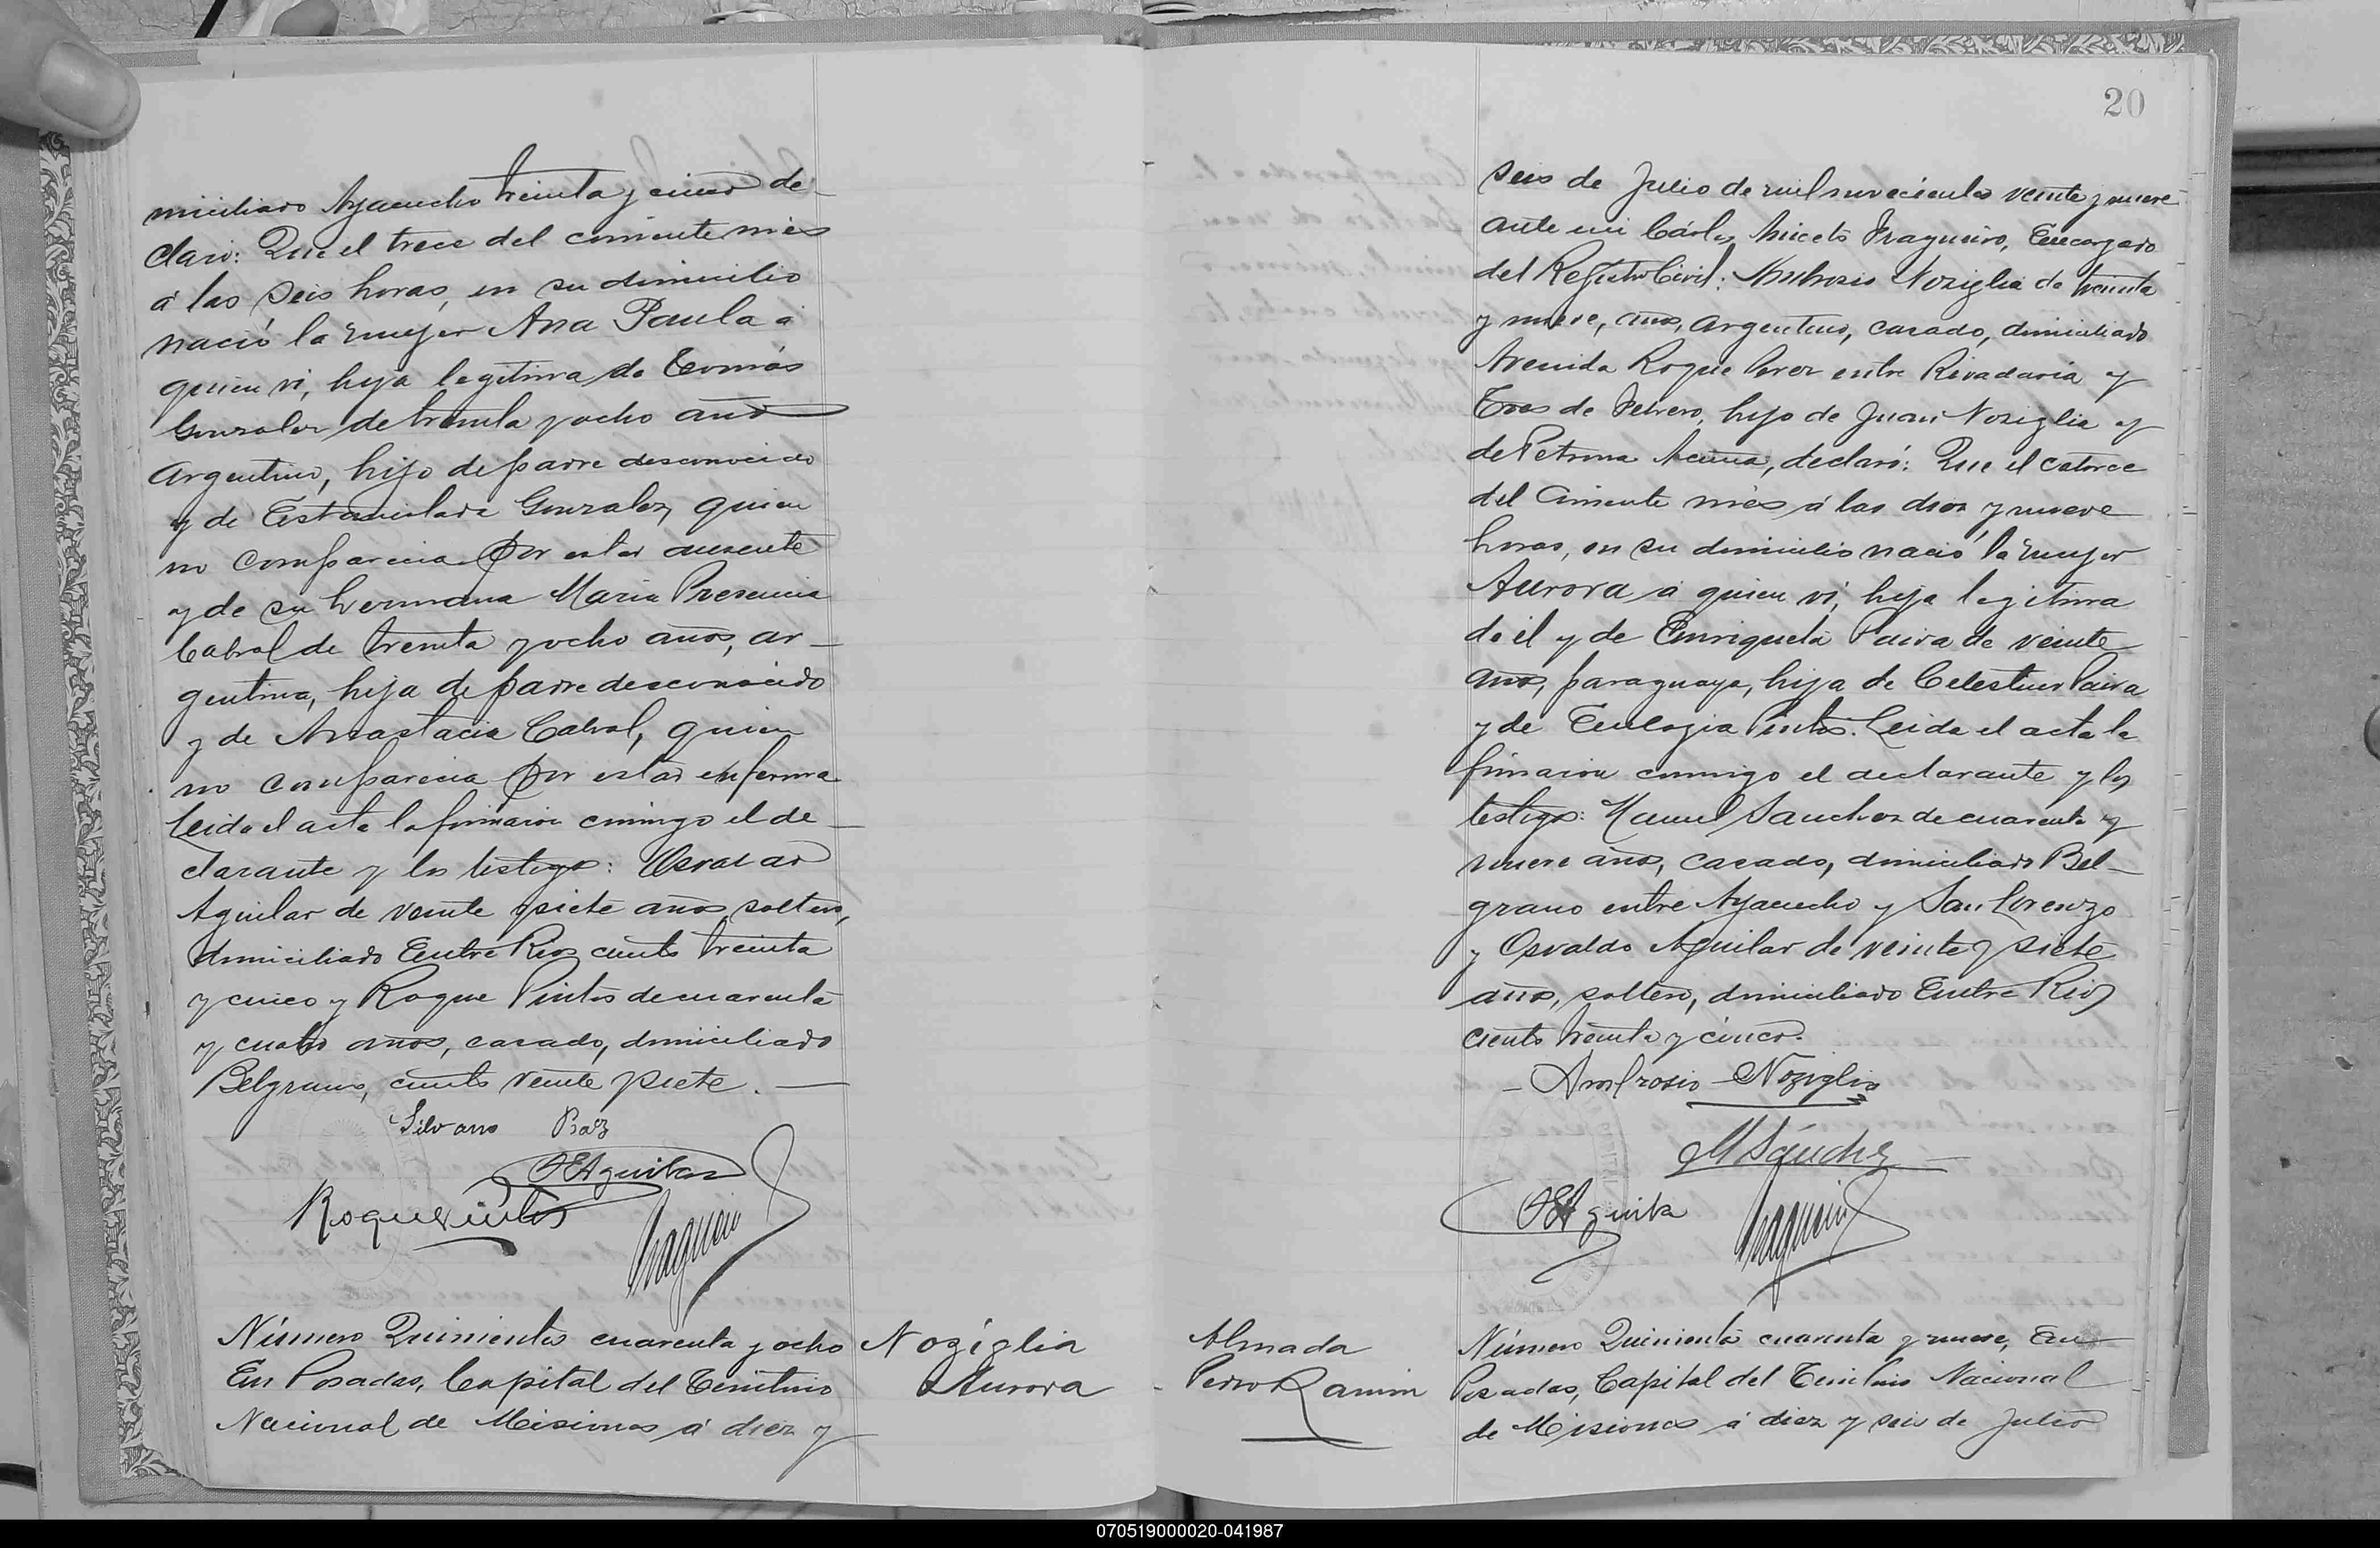 miciliado Ayacucho treinta y cinco de-
claró: Que el trece del corriente mes
á las seis horas, en su domicilio
nació la mujer Ana Paula á
quien vi, hija legítima de Tomás
Gonzalez de treinta y ocho años
Argentino, hijo de padre desconocido
y de Estanislada Gonzalez, quien
no comparecia por estar ausente
y de su hermana Maria Presencia
Cabral de treinta y ocho años, ar-
gentina, hija de padre desconocido
y de Anastacia Cabral, quien
no comparecia por estar enferma
Leida el acta la firmaron conmigo el de-
clarante y los testigos:
Aguilar de veinte y siete años, soltero,
domiciliado Entre Rios ciento treinta
y cinco y Roque Pintos de cuarenta
y cuatro años, casado, domiciliado
Belgrano, ciento veinte y siete. —
Silvano Paez
OEAguilar
Roque Pintos
Fragueiro
Número Quinientos cuarenta y ocho
En Posadas, Capital del Territorio
Nacional de Misiones á diez y
Noziglia
Aurora
20
seis de Julio de mil novecientos veinte y nueve
ante mi Cárlos Aniceto Fragueiro, Encargado
del Registro Civil: Ambrosio Noziglia de treinta
y nueve, años, argentino, casado, domiciliado
Avenida Roque Perez entre Rivadavia y
Tres de Febrero, hijo de Juan Noziglia y
de Petrona Acuña, declaró: Que el catorce
del corriente mes á las diez y nueve
horas, en su domicilio nació la mujer
Aurora á quien vi, hija legitima
de él y de Enriqueta Paiva de veinte
años, paraguaya, hija de Celestino Paiva
y de Eulogia Pintos. Leida el acta la
firmaron conmigo el declarante y los
testigos: Manuel Sanchez de cuarenta y
nueve años, casado, domiciliado Bel-
grano entre Ayacucho y San Lorenzo
y Osvaldo Aguilar de veinte y siete
años, soltero, domiciliado Entre Rios
ciento treinta y cinco.
- Ambrosio - Noziglia
M Sánchez
OEAguilar
Fragueiro
Almada
Pedro Ramon
Número Quinientos cuarenta y nueve, En
Posadas, Capital del Territorio Nacional
de Misiones á diez y seis de Julio
070519000020-041987